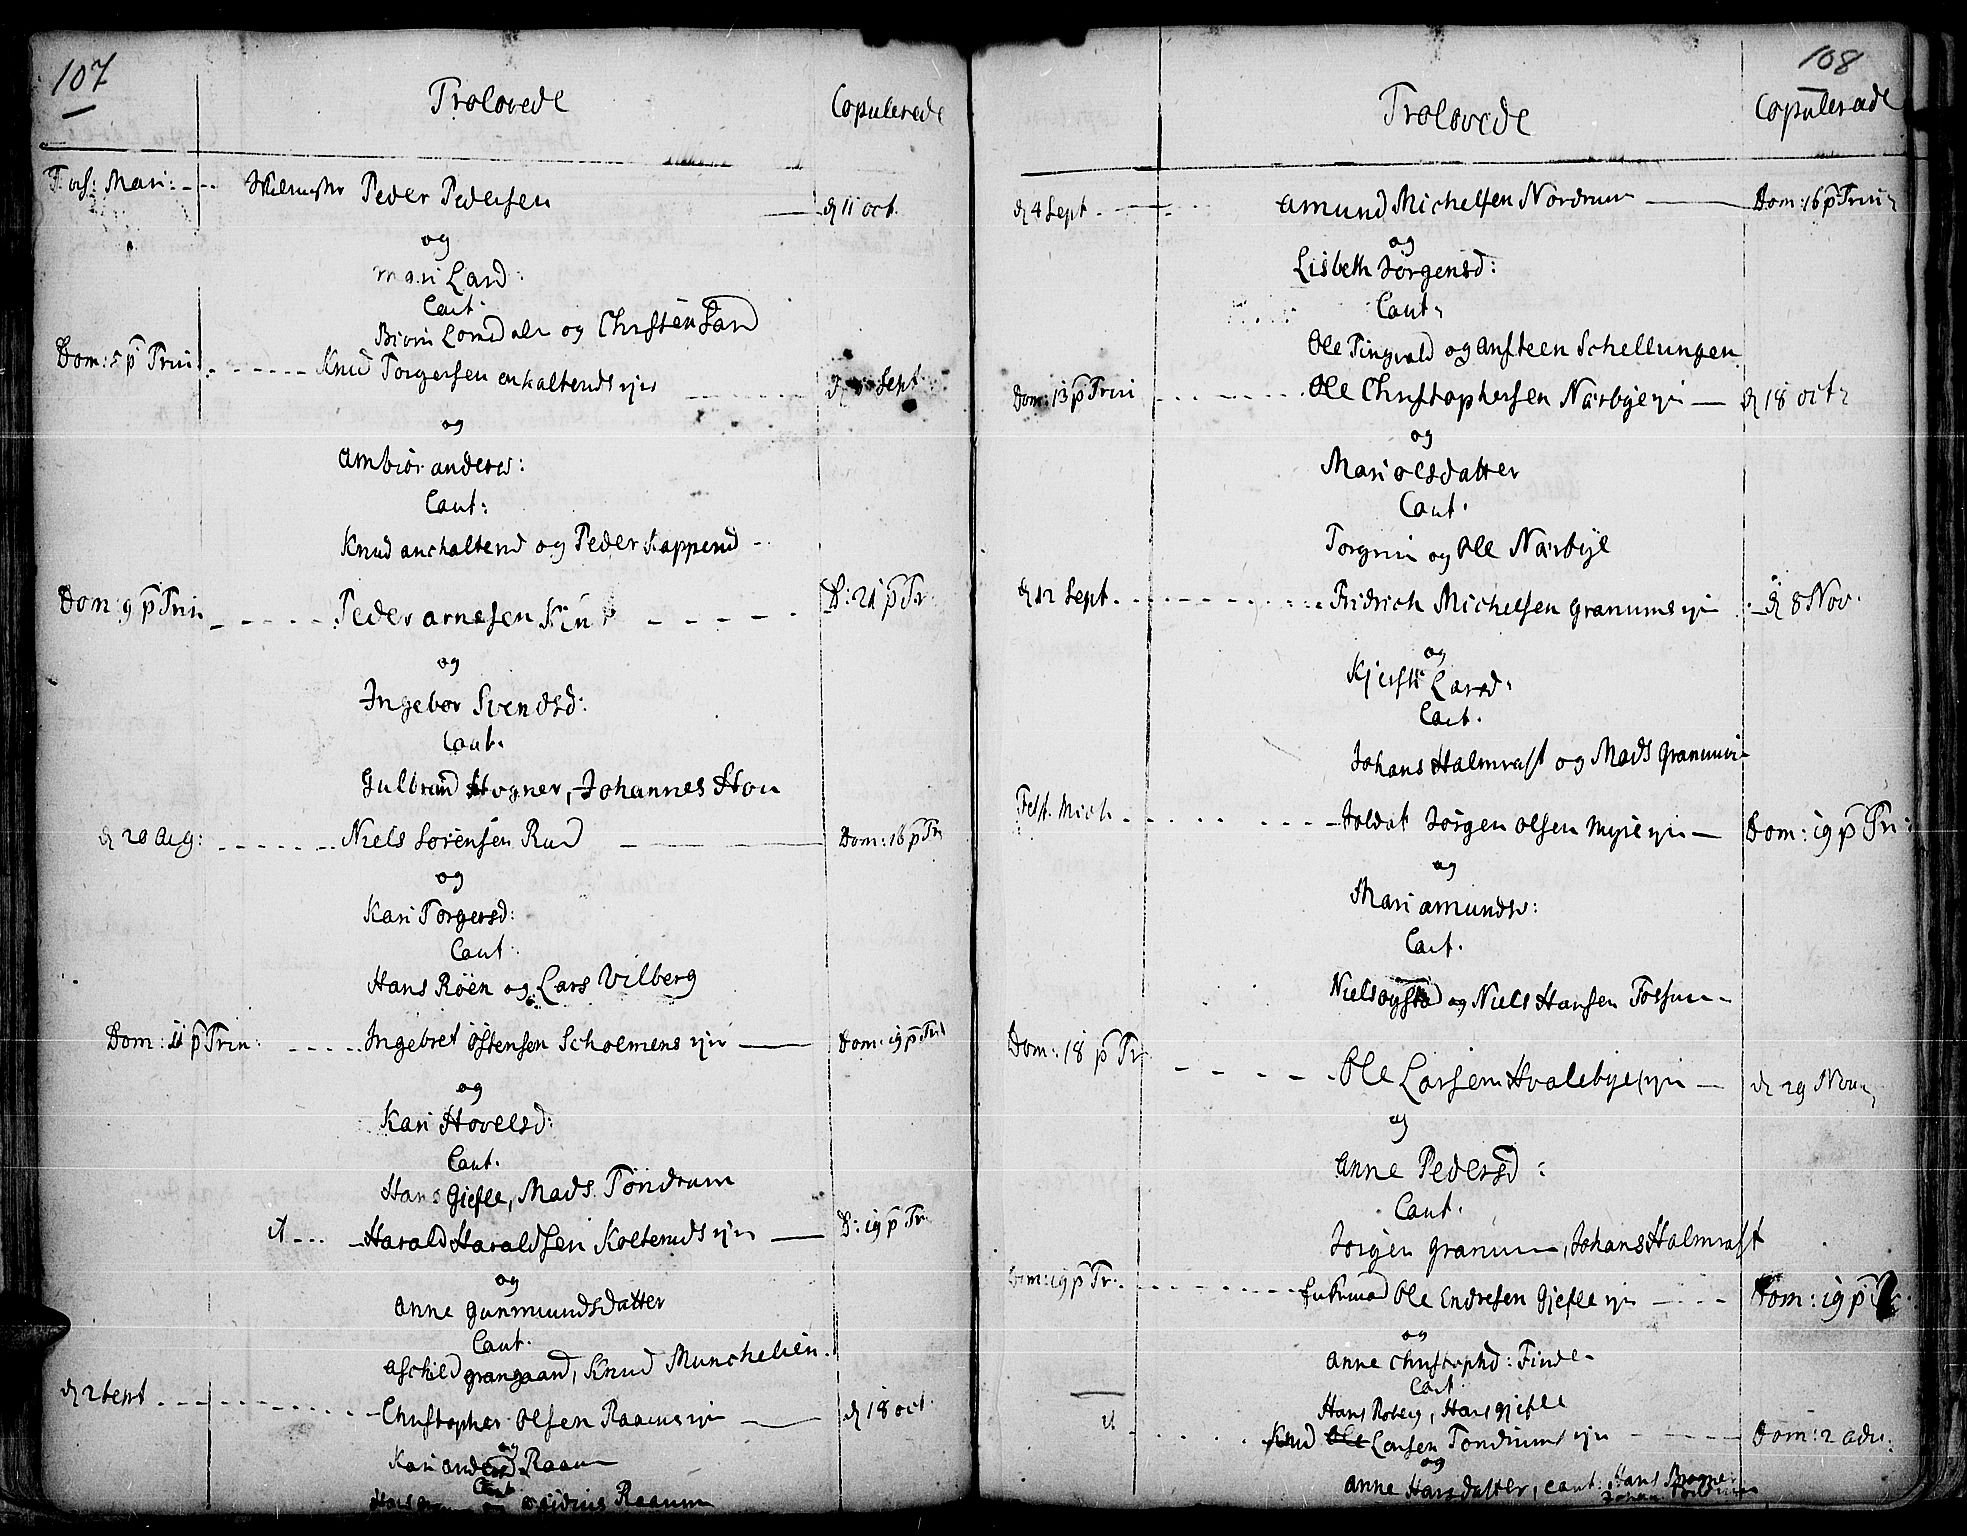 107
Trolovede
Copulerede
Fest: Mari:
Peder Pedersen
d 11 oct.
og
Mari Larsd:
Caut
og Christen
Dom: 5 p Trin
Knud Torgersen
Sept
og
Ambiør anders:
Caut:
Knud anchaltend og Peder Kappend
Dom: 9 p Trin
Peder arnesen
D: 21 p Tr.
og
Ingebor Svendsd:
Caut.
Gulbrand Hogner, Johannes Hou
d 20 Aug:
Niels Sørensen Rud
Dom: 16 p Tr
og
Kari Torgersd:
Caut:
Hans Röen og Lars Vilberg
Dom: 11 p Trin:
Ingebret Östensen Scholmens ejn
Dom: 19 p Tri
og
Kari Hovelsd:
Caut.
Hans Giefle, Mads Tondrum
it
Harald Haraldsen Kolteruds ejn
D: 19 p Tr
og
Anne Gunmundsdatter
Caut.
Aschild grangaard, Knud Munchelien
d 2 Sept
Christopher Olsen Raaums ejn
d 18 oct.
og
Kari andersd Raaum
Caut
Raaum
108
Trolovede
Copulerede
d 4 Sept.
Amund Michelsen Nordrum
Dom: 16 p Trin
og
Lisbeth Jörgensd:
Caut
Ole Tingvold og Ansteen Schellungen
Dom: 13 p Trin
Ole Christophersen Narbye ejn
d 18 oct
og
Mari olsdatter
Caut.
Torgrim og Ole Narbye
d 12 Sept.
Fridrich Michelsen Granums ejn
d 8 Nov.
og
Kjersti Larsd:
Caut.
Johans Halmrast og Mads Granum
Fest. Mich
Soldat Jörgen Olsen Myre ejn
Dom: 19 p Tri:
og
Mari Amunds:
Caut.
Niels og Niels Hansen Fossum
Dom: 18 p Tr
Ole Larsen Hvalebye ejn
d 29 Nov
og
Anne Pedersd:
Caut.
Jörgen Granum, Johans Halmrast
Dom: 19 p Tr.
Ole Endresen Giefle ejn
Dom: 19 p
og
Anne Christophd: Finde
Caut
Hans Roberg, Hans giefle
it
Knud Ole Larsen Tondrums ejn
Dom: 2 adv:
og
Anne Hansdatter, Caut: Hans
Johan